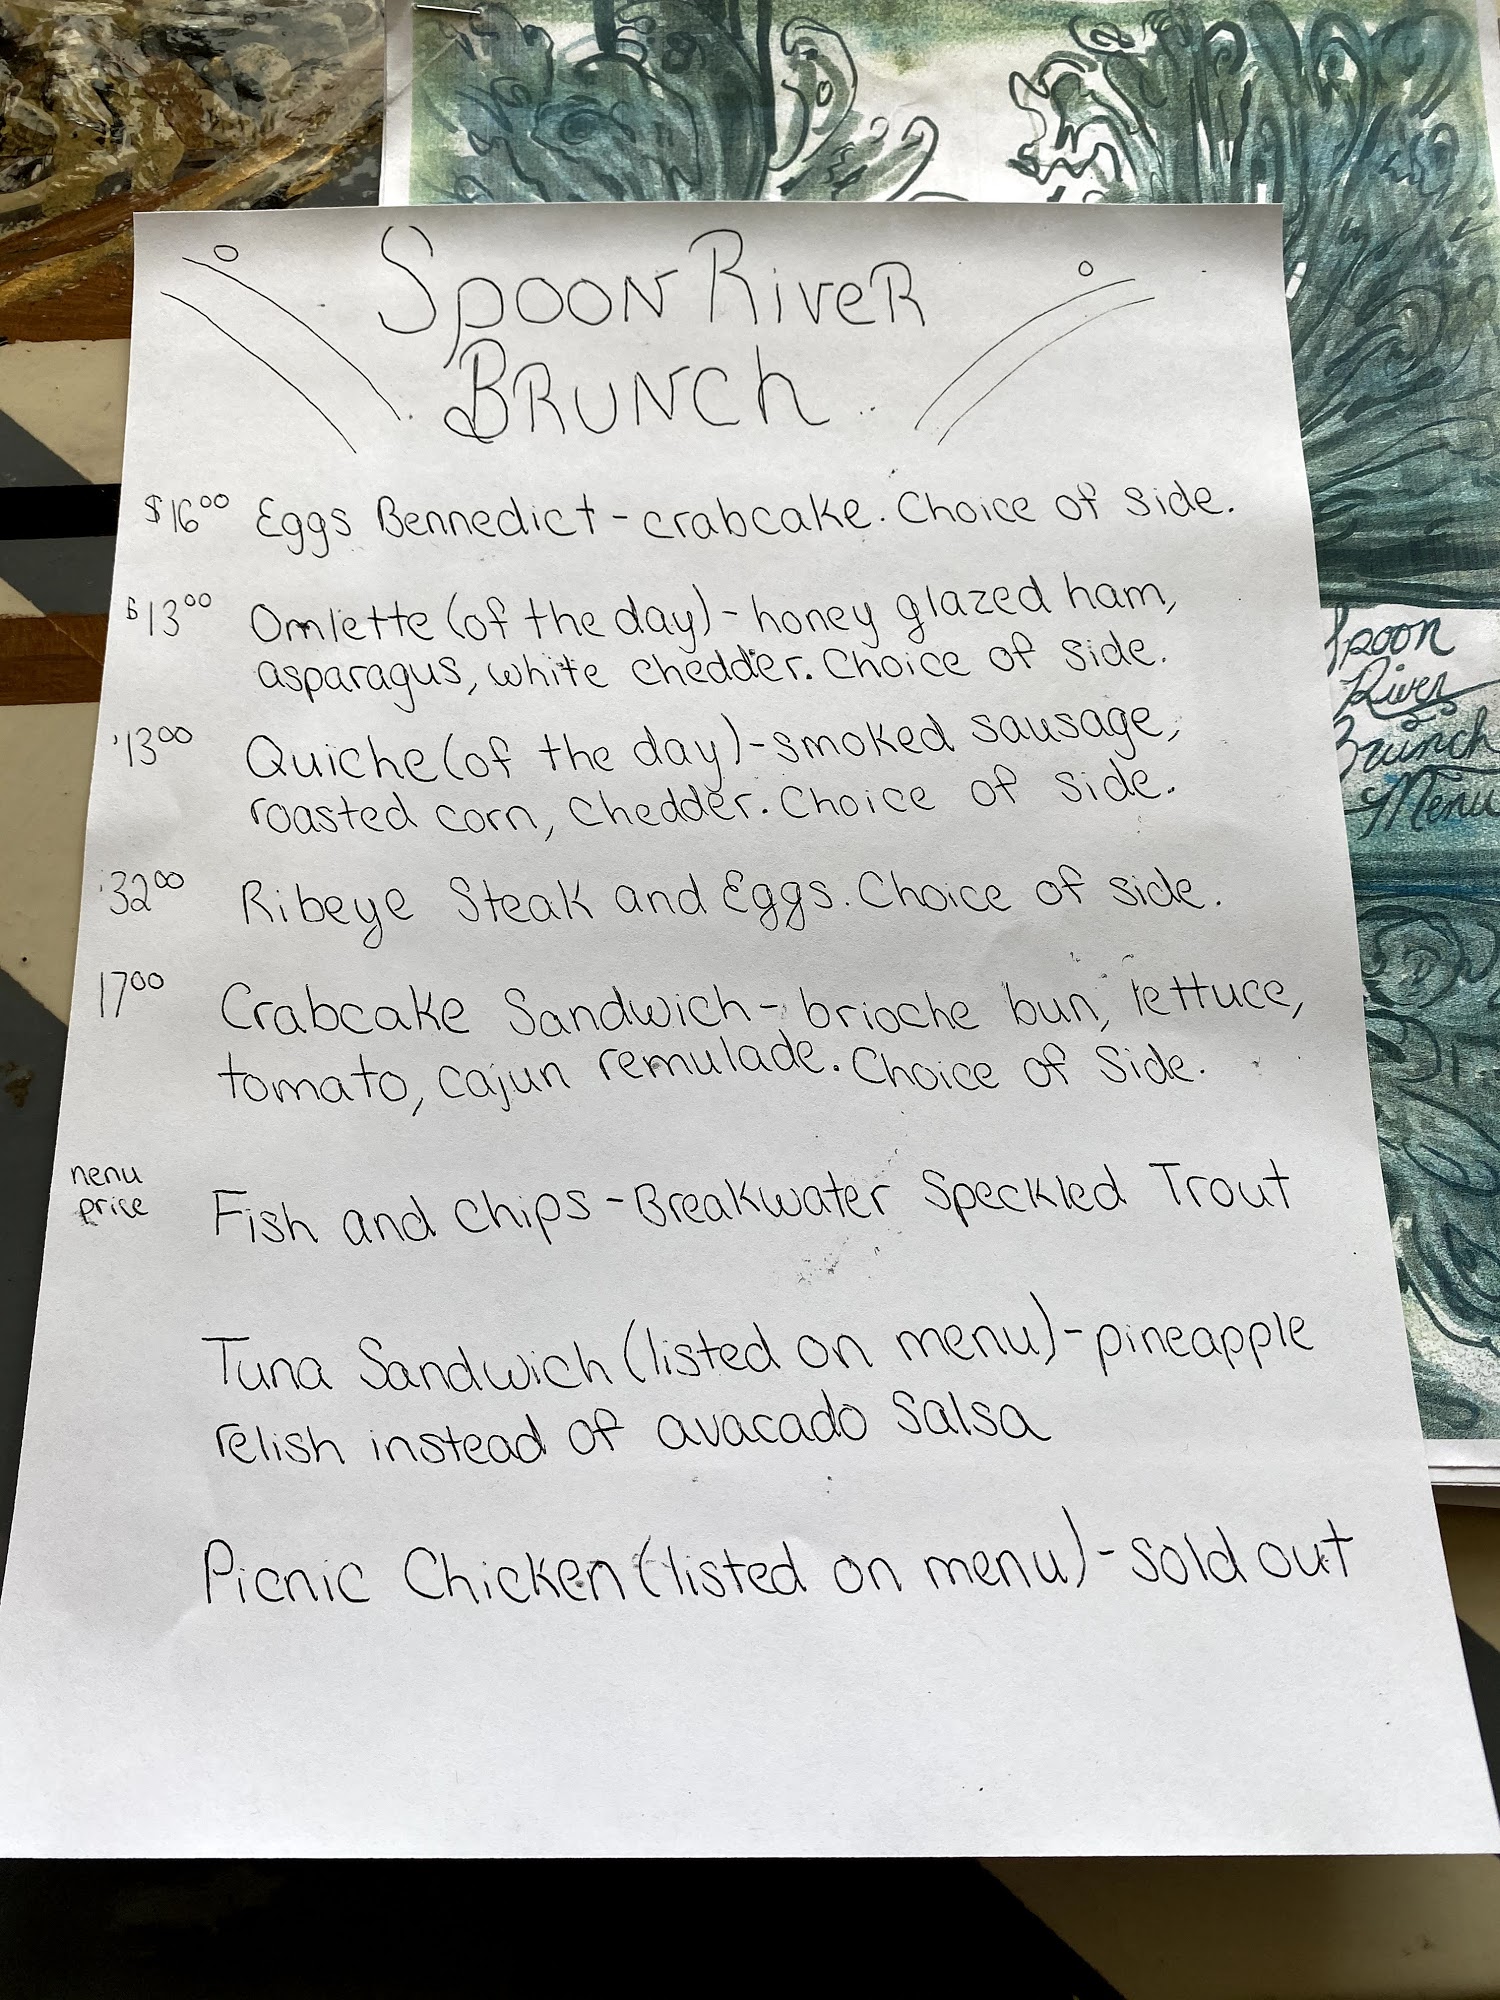 Spoon River
Brunch
$16.00 Eggs Bennedict - crabcake. Choice of side.
$13.00 Omlette (of the day) - honey glazed ham,
asparagus, white chedder. Choice of side.
13.00 Quiche (of the day) - smoked sausage,
roasted corn, chedder. Choice of side.
32.00 Ribeye Steak and Eggs. Choice of side.
17.00 Crabcake Sandwich - brioche bun, lettuce,
tomato, cajun remulade. Choice of Side.
menu
price
Fish and chips - Breakwater Speckled Trout
Tuna Sandwich (listed on menu) - pineapple
relish instead of avacado Salsa
Picnic Chicken (listed on menu) - sold out
Spoon
River
Brunch
Menu